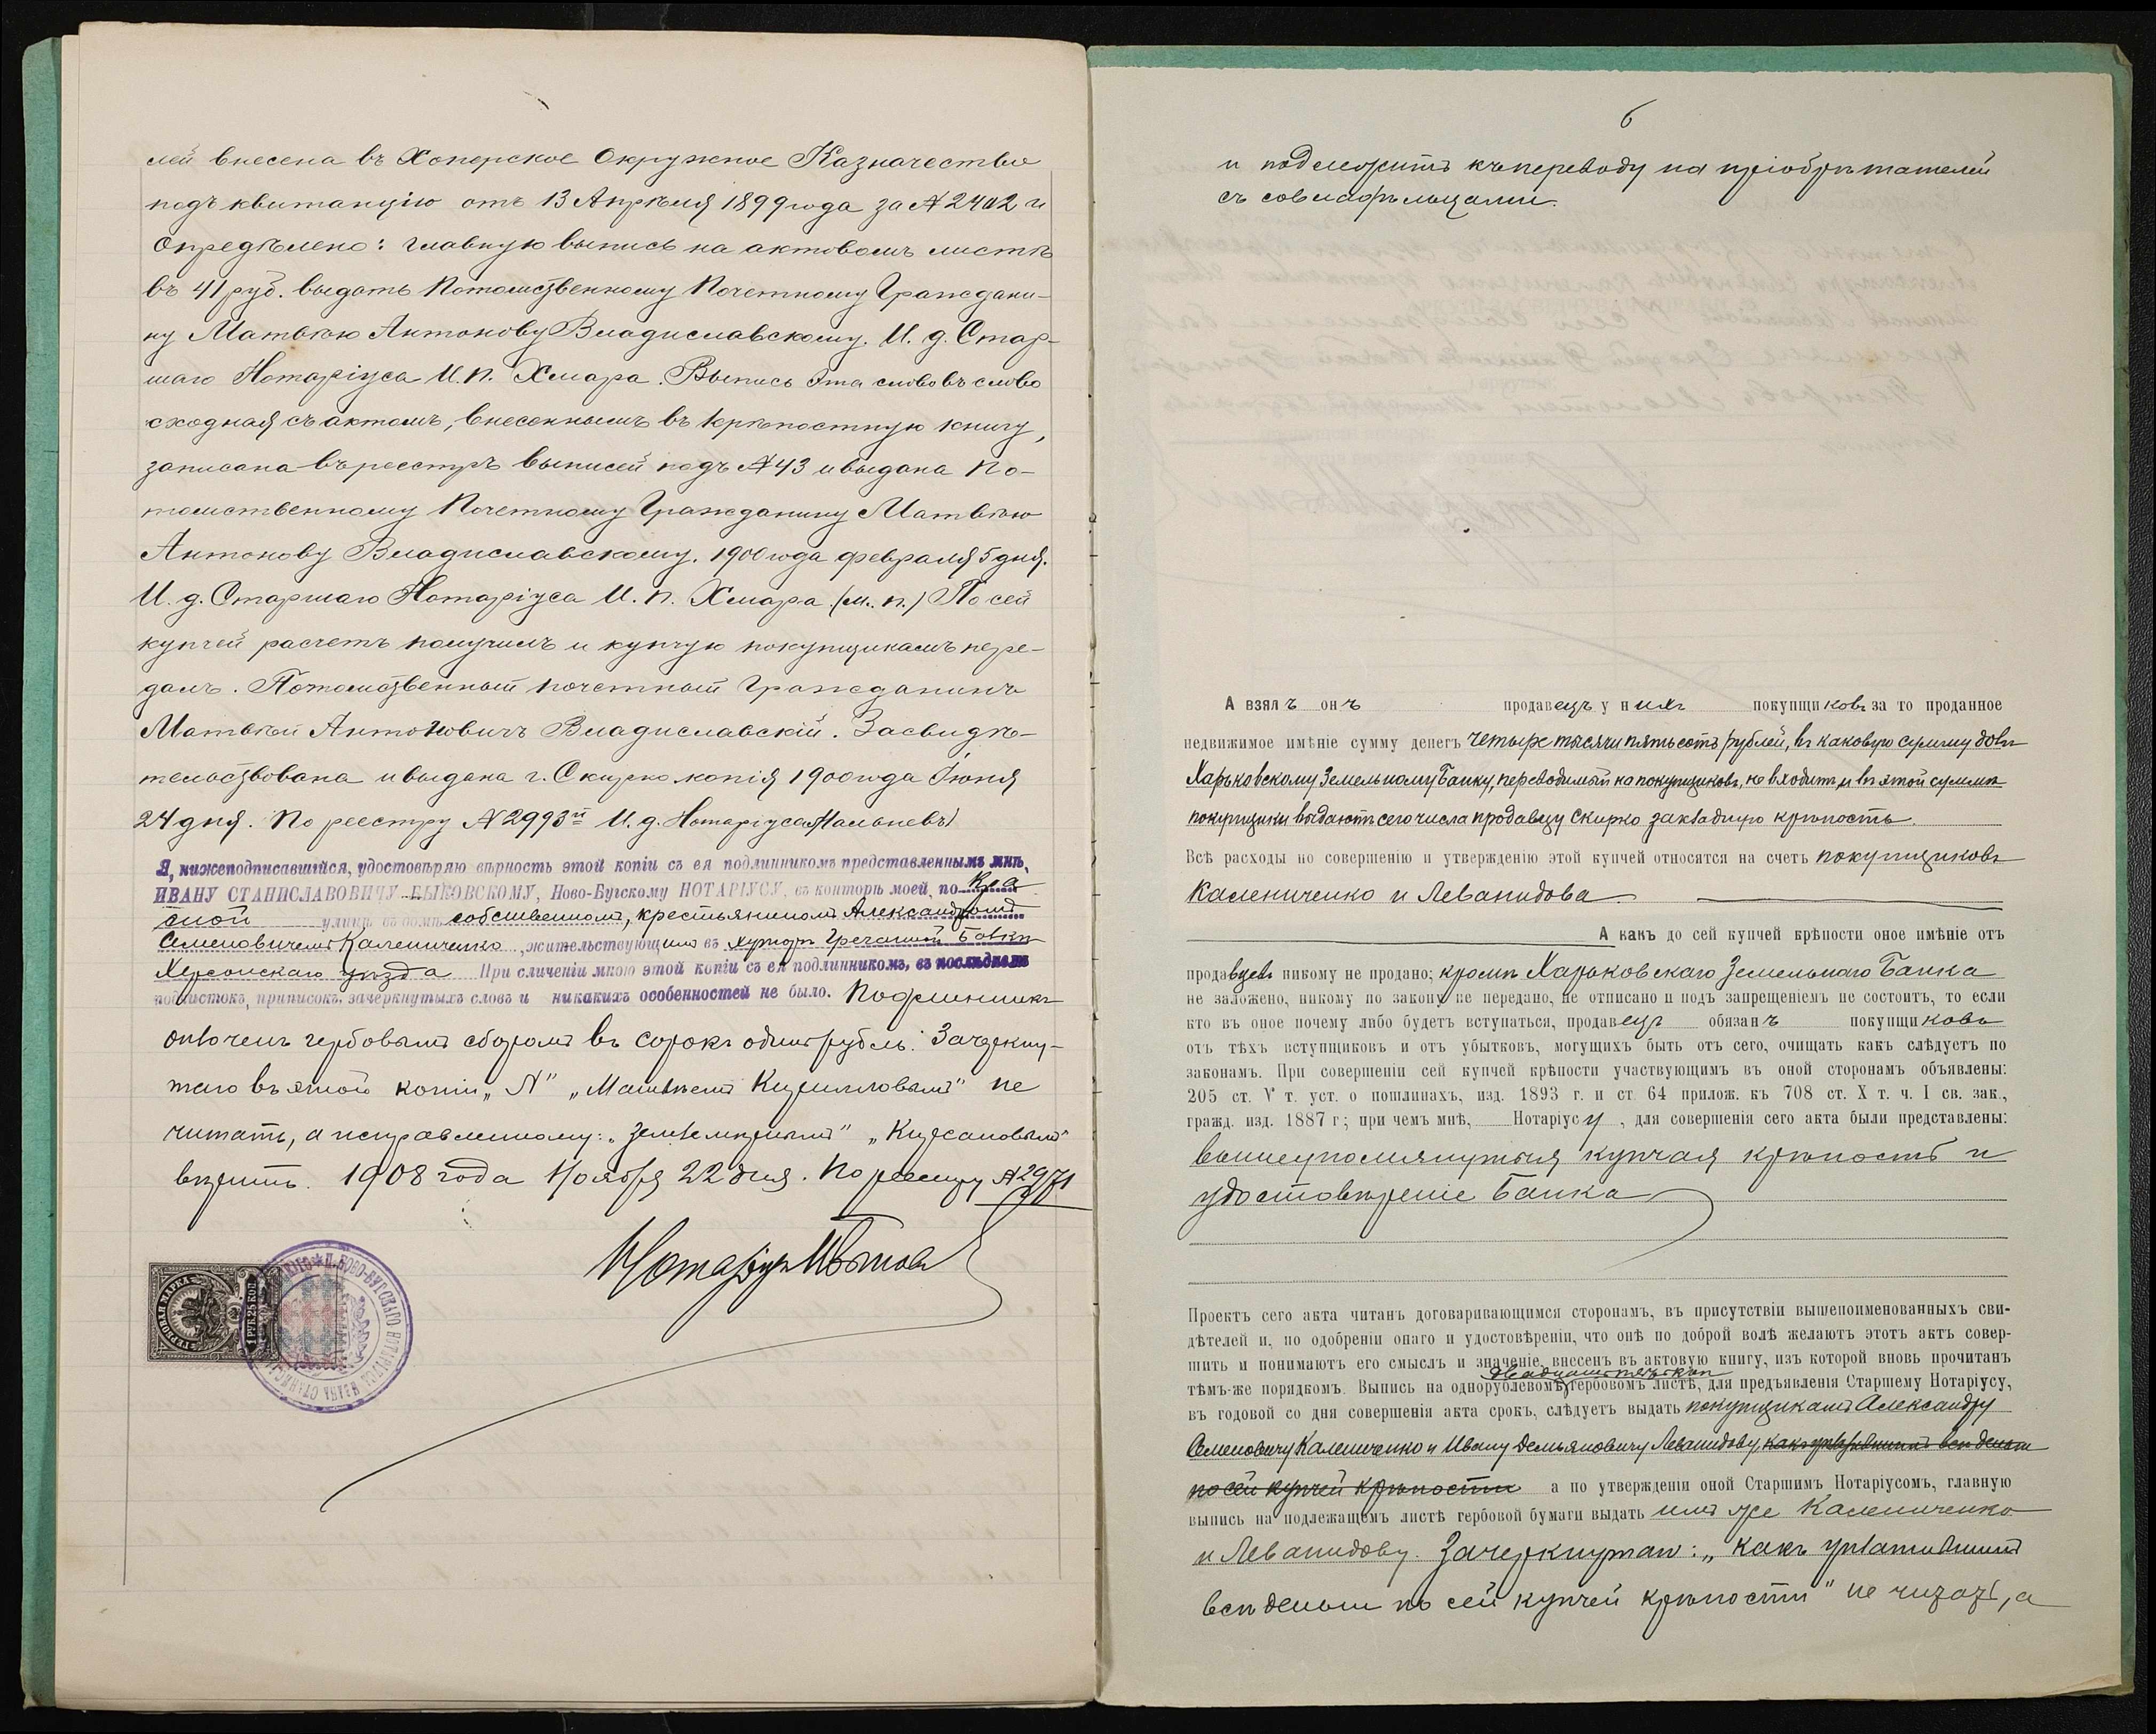 лей внесена въ Хоперское Окружное Казначество
подъ квитанцію отъ 13 Апрѣля 1899 года за № 2402 и
опредѣлено: главную выпись на актовомъ листѣ
въ 41 руб. выдать Потомственному Почетному Граждани-
ну Матвѣю Антонову Владиславскому. И. д. Стар-
шаго Нотаріуса И. П. Хмара. Выпись эта слово въ слово
сходная съ актомъ, внесеннымъ въ крѣпостную книгу,
записана въ реестръ выписей подъ № 43 и выдана По-
томственному Почетному Гражданину Матвѣю
Антонову Владиславскому. 1900 года февраля 5 дня.
И. д. Старшаго Нотаріуса И. П. Хмара. (м. п.) По сей
купчей расчетъ получилъ и купчую покупщикамъ пере-
далъ. Потомственный почетный Гражданинъ
Матвѣй Антоновичъ Владиславскій. Засвидѣ-
тельствована и выдана г. Скирко копія 1900 года Іюня
24 дня. По реестру № 2993й И. д. Нотаріуса
Я, нижеподписавшійся, удостовѣряю вѣрность этой копіи съ ея подлинникомъ представленнымъ мнѣ,
ИВАНУ СТАНИСЛАВОВИЧУ БЫКОВСКОМУ, Ново-Бугскому НОТАРІУСУ, въ конторѣ моей, по Кра
сной улицѣ въ домѣ собственномъ, крестьяниномъ Александромъ
Семеновичемъ Калениченко, жительствующимъ въ хуторѣ Гречаной Балки
Херсонскаго уѣзда При сличеніи мною этой копіи съ ея подлинникомъ, въ послѣднемъ
подчистокъ, приписокъ, зачеркнутыхъ словъ и никакихъ особенностей не было. Подлинникъ
оплоченъ гербовымъ сборомъ въ сорокъ одинъ рубль. Зачеркну-
таго въ этой копіи „N" „Матвѣемъ Кирилловымъ" не
читать, а исправленному: „Землемѣрнымъ" „Кирсановымъ"
вѣрить. 1908 года Ноября 22 дня. По реестру № 2971
Нотаріусъ
ГЕРБОВАЯ МАРКА
1 РУБ. 25 КОП.
Н. НОВО-БУГСКАГО НОТАРІУСА ИВАНЪ СТАНИСЛАВ
6
и подлежитъ къ переводу на пріобрѣтателей
съ совладѣльцами.
А взялъ онъ продавецъ у нихъ покупщиковъ за то проданное
недвижимое имѣніе сумму денегъ четыре тысячи пятьсотъ рублей, въ каковую сумму долгъ
Харьковскому Земельному Банку, переводимый на покупщиковъ, не входитъ и въ этой суммѣ
покупщики выдаютъ сего числа продавцу Скирко закладную крѣпость.
Всѣ расходы по совершенію и утвержденію этой купчей относятся на счетъ покупщиковъ
Калениченко и Леванидова.
А какъ до сей купчей крѣпости оное имѣніе отъ
продавцевъ никому не продано; кромѣ Харьковскаго Земельнаго Банка
не заложено, никому по закону не передано, не отписано и подъ запрещеніемъ не состоитъ, то если
кто въ оное почему либо будетъ вступаться, продавецъ обязанъ покупщиковъ
отъ тѣхъ вступщиковъ и отъ убытковъ, могущихъ быть отъ сего, очищать какъ слѣдуетъ по
законамъ. При совершеніи сей купчей крѣпости участвующимъ въ оной сторонамъ объявлены:
205 ст. V т. уст. о пошлинахъ, изд. 1893 г. и ст 64 прилож. къ 708 ст. X т. ч. I св. зак.,
гражд. изд. 1887 г; при чемъ мнѣ, Нотаріусу, для совершенія сего акта были представлены:
вышеупомянутыя купчая крѣпость и
удостовѣреніе Банка
Проектъ сего акта читанъ договаривающимся сторонамъ, въ присутствіи вышепоименованныхъ сви-
дѣтелей и, по одобреніи онаго и удостовѣреніи, что онѣ по доброй волѣ желаютъ этотъ актъ совер-
шить и понимаютъ его смыслъ и значеніе, внесенъ въ актовую книгу, изъ которой вновь прочитанъ
двадцатипятикоп
тѣмъ-же порядкомъ. Выпись на однорублевомъ гербовомъ листѣ, для предъявленія Старшему Нотаріусу,
въ годовой со дня совершенія акта срокъ, слѣдуетъ выдать покупщикамъ Александру
Семеновичу Калениченко и Ивану Демьяновичу Леванидову, какъ уплатившимъ всѣ деньги
по сей купчей крѣпости а по утвержденіи оной Старшимъ Нотаріусомъ, главную
выпись на подлежащемъ листѣ гербовой бумаги выдать имъ же Калениченко
и Леванидову. Зачеркнутаго: „какъ уплатившимъ
всѣ деньги по сей купчей крѣпости" не читать, а